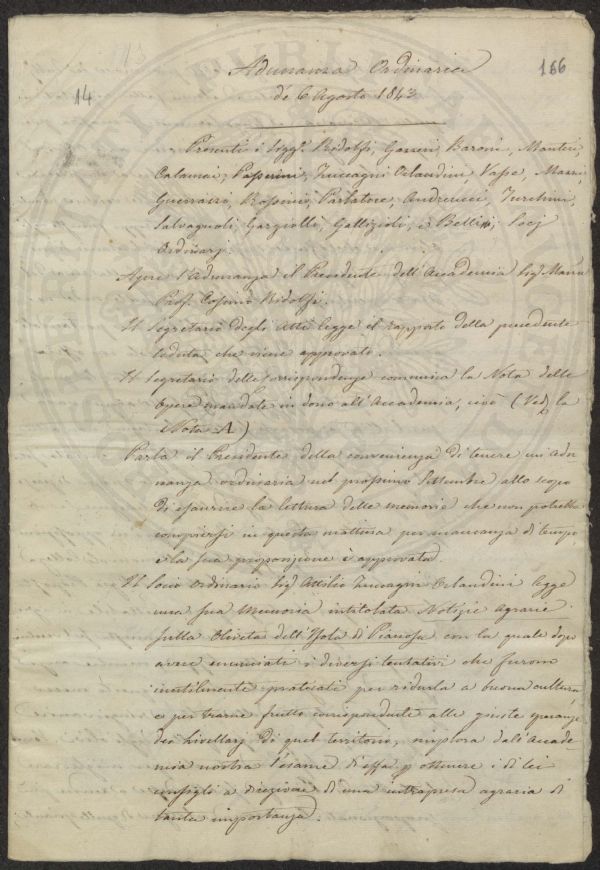 13
166
14
Adunanza Ordinaria
de 6 Agosto 1843
Presenti i Sigg.i Ridolfi, Gazzeri, Baroni, Manteri,
Calamai, Passerini, Zuccagni Orlandini, Masse, Mazzi,
Guerrazzi, Rossini, Parlatore, Andreucci, Turchini,
Salvagnoli, Gargiolli, Gallizioli, e Bellini, Socj
Ordinarj.
Apre l'Adunanza il Presidente dell'Accademia Sig.
Prof. Cosimo Ridolfi.
Il Segretario degli Atti legge il rapporto della precedente
seduta, che viene approvato.
Il Segretario delle corrispondenze comunica la Nota delle
Opere mandate in dono all'Accademia, cioè (Ved. la
Nota A)
Parla il Presidente della convenienza di tenere un'Adu
nanza ordinaria nel prossimo Settembre allo scopo
di esaurire la lettura delle memorie che non potrebbe
compiersi in questa mattina per mancanza di tempo
e la sua proposizione è approvata.
Il Socio Ordinario Sig. Attilio Zuccagni Orlandini legge
una sua Memoria intitolata Notizie Agrarie
sulla Oliveta dell'Isola di Pianosa, con la quale dopo
avere enunciati i diversi tentativi che furono
inutilmente praticati per ridurla a buona cultura,
e per trarne frutto corrispondente alle giuste speranze
dei livellarj di quel territorio, implora dall'Accade
mia nostra l'esame di essa p ottenere i di lei
consigli a direzione di una intrapresa agraria di
tanta importanza.